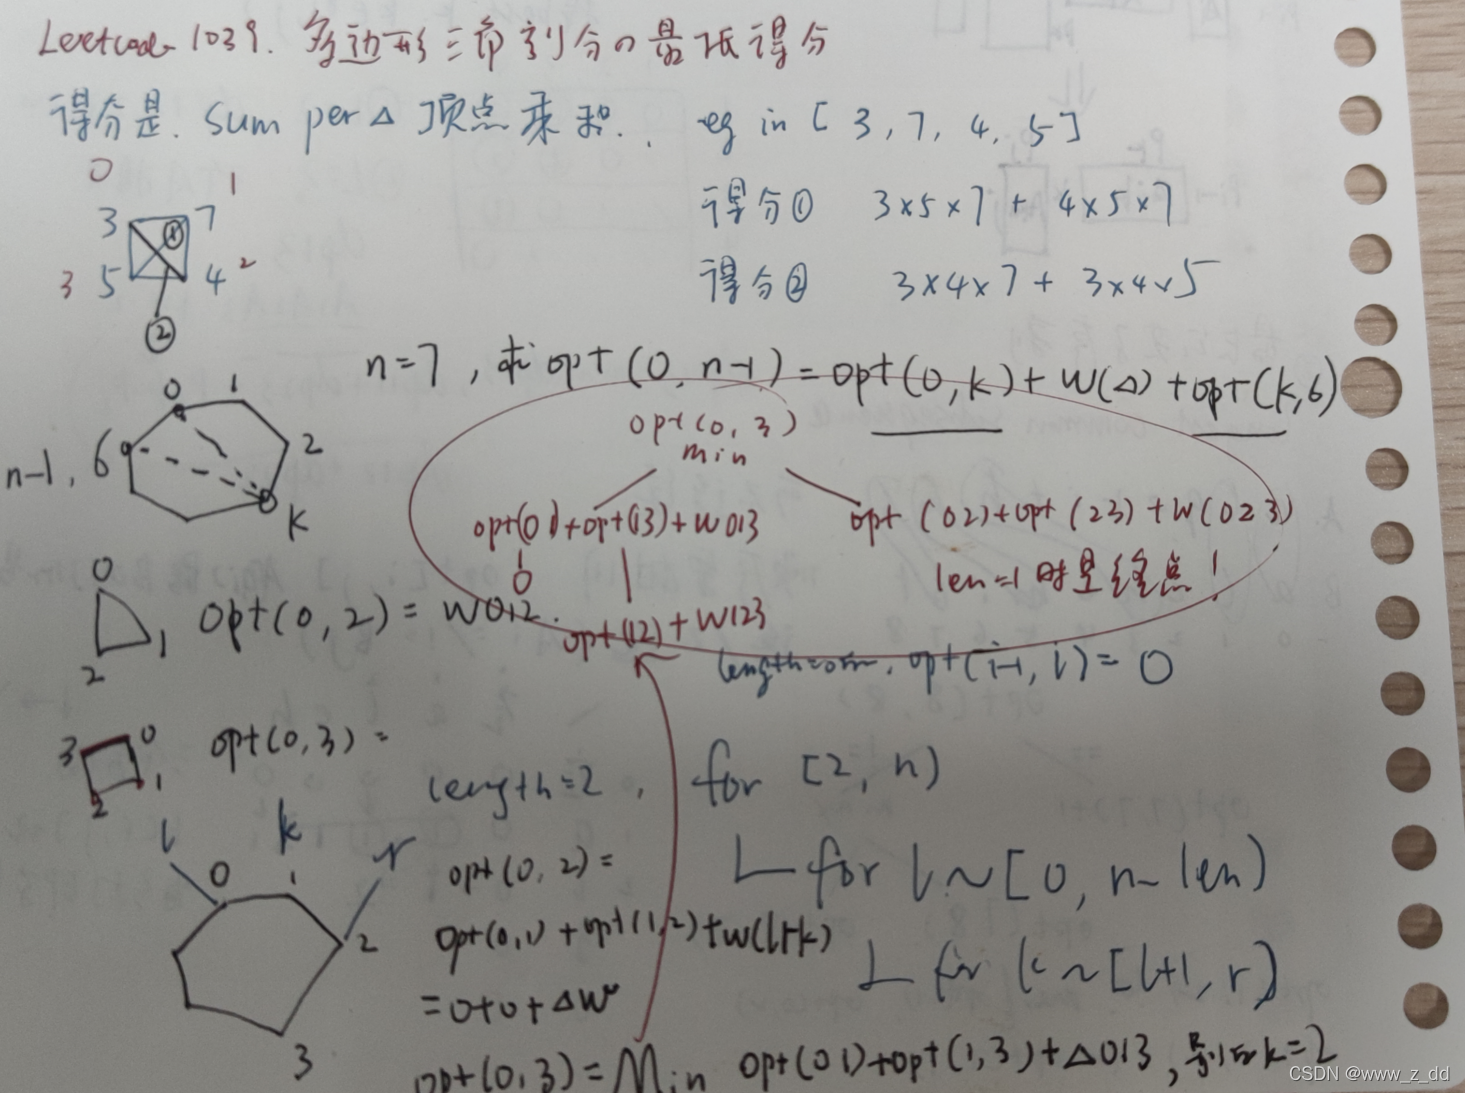 Leetcode 1039. 多边形三角剖分の最低得分
得分是. sum per △ 顶点乘积. eg in [3, 7, 4, 5]
0
1
3 7
① 得分① 3×5×7 + 4×5×7
3 5 4 2
② 得分② 3×4×7 + 3×4×5
n=7, 求 opt(0, n-1) = opt(0, k) + W(△) + opt(k, 6)
0 1
opt(0, 3)
min
n-1, 6 2
k
opt(01)+opt(13)+W013 opt(02)+opt(23)+W(023)
0 len=1时是终点!
0
2 1 opt(0, 2) = W012.
opt(12)+W123
opt(i-1, i) = 0
3 0 1 2 opt(0, 3) =
length=2, for [2, n)
l k r
0 1 2 3
opt(0, 2) = for l~[0, n-len)
opt(0,1)+opt(1,2)+w(lrk)
for k~[l+1, r)
=0+0+△W
opt(0,3) = Min opt(01)+opt(1,3)+△013, k=2
CSDN @www_z_dd